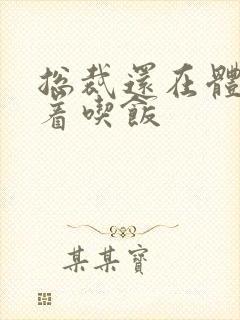 总裁還在體
着喫飯
某某寶